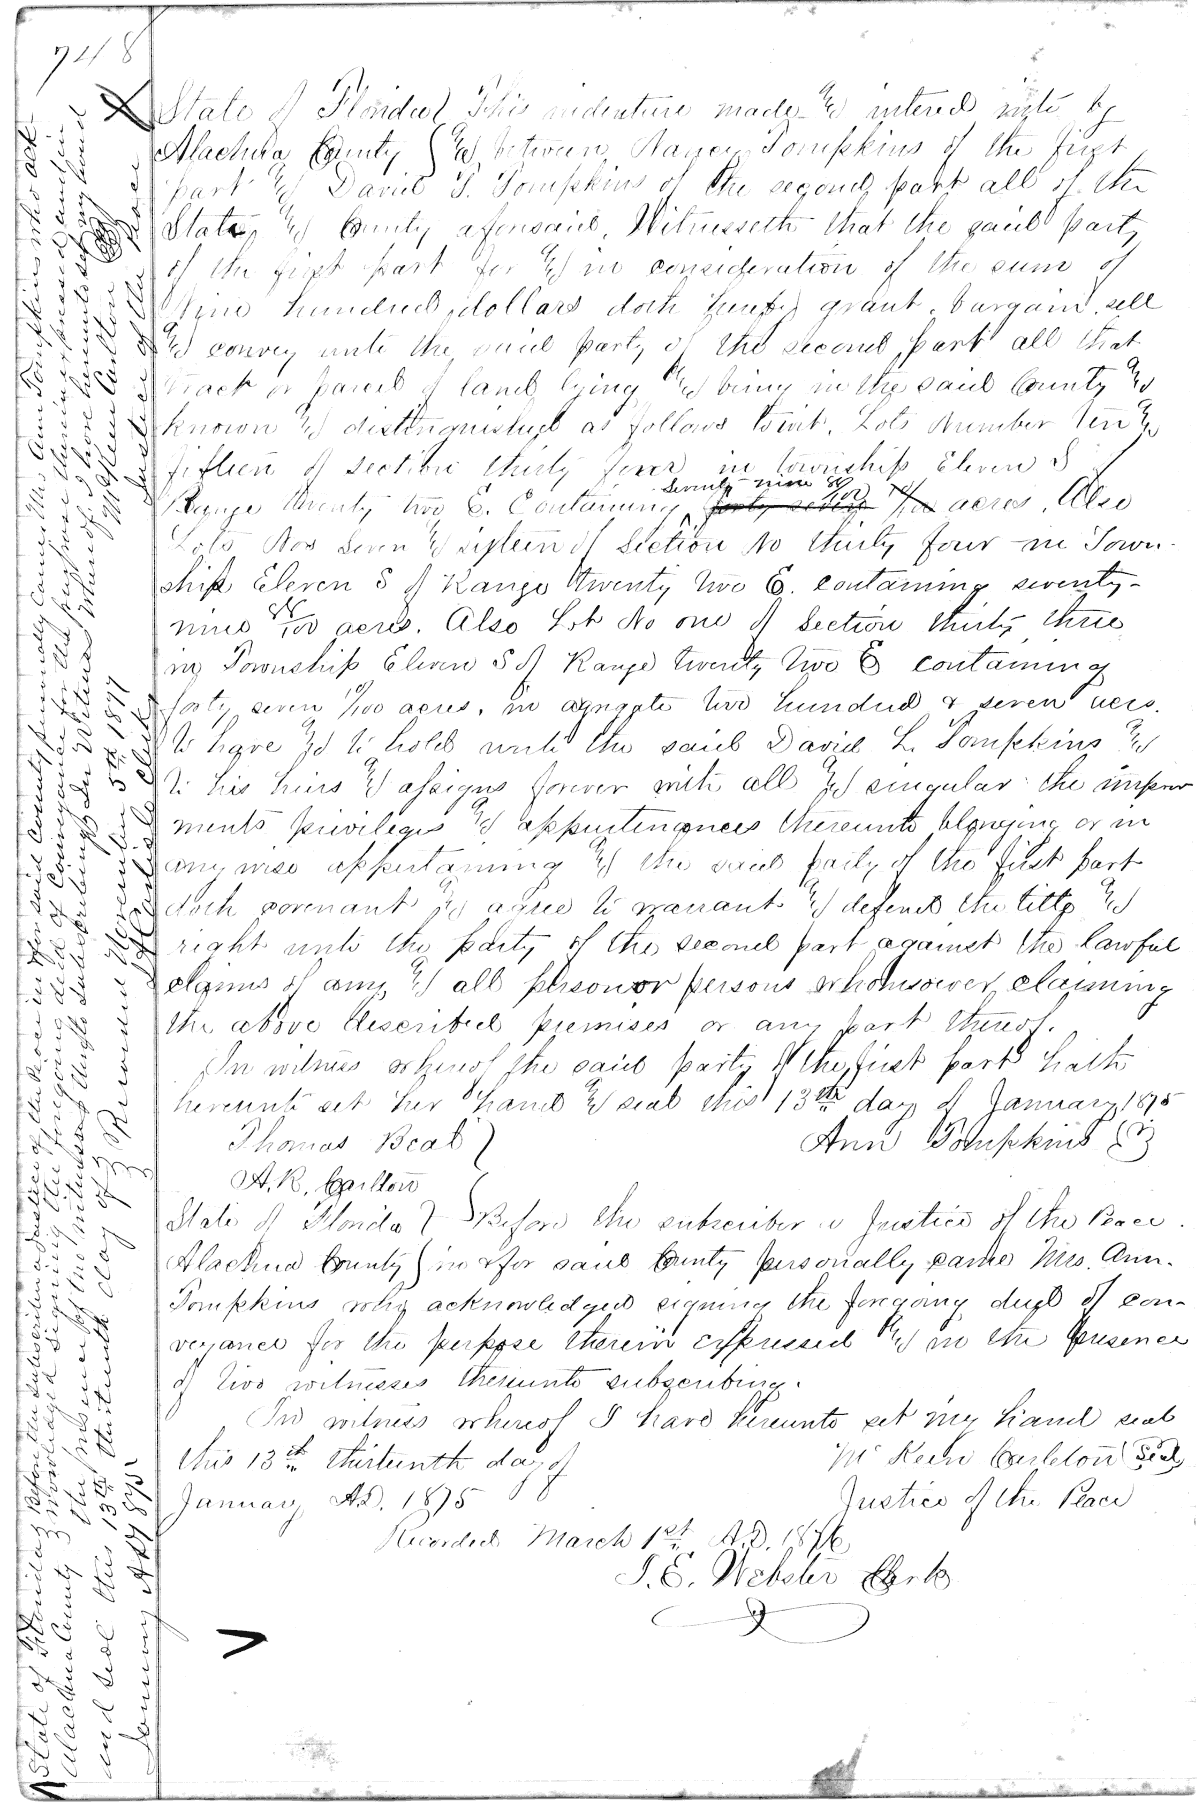 748
State of Florida } This indenture made & intered into by
Alachua County } & between Nancy Tompkins of the first
part & David S. Tompkins of the second part all of the
State & County aforesaid, Witnesseth that the said party
of the first part for & in consideration of the sum of
Nine hundred dollars doth hereby grant, bargain, sell
& convey unto the said party of the second part all that
track or parcel of land lying & being in the said County &
known & distinguished as follows towit. Lots Number Ten &
fifteen of section thirty four in township Eleven S
Range twenty two E. Containing seventy-nine 80/100 acres, Also
Lots Nos Seven & sixteen of Section No thirty four in Town-
ship Eleven S of Range twenty two E. containing seventy-
nine 80/100 acres. Also Lot No one of Section thirty three
in Township Eleven S of Range twenty two E containing
forty seven /100 acres, in agregate two hundred & seven acrs.
To have & to hold unto the said David L. Tompkins &
to his heirs & assigns forever with all & singular the improv
ments privileges & appurtenances thereunto blonging or in
any wise appertaining & the said party of the first part
doth covenant & agree to warrant & defend the title &
right unto the party of the second part against the lawful
claims of any & all person or persons whomsoever claiming
the above described premises or any part thereof.
In witness whereof the said party of the first part hath
hereunto set her hand & seal this 13th day of January 1875
Thomas Beal } Ann Tompkins
A. R. Carlton
State of Florida } Before the subscriber a Justice of the Peace
Alachua County } in & for said County personally came Mrs. Ann
Tompkins who acknowledged signing the forgoing deed of con-
veyance for the perpose therein expressed & in the presence
of two witnesses thereunto subscribing.
In witness whereof I have hereunto set my hand seal
this 13th thirteenth day of McKeen Carlton Seal
January A.D. 1875 Justice of the Peace
Recorded March 1st A.D. 1876
J. E. Webster Clerk
State of Florida } Before the subscriber a Justice of the Peace in & for said County personally came Mrs Ann Tompkins who ack-
Alachua County } nowledged signing the foregoing deed of Conveyance for the purpose therein expressed and in
the presence of two witnesses thereto subscribing. In Witness Whereof I have hereunto set my hand
and seal this 13th thirteenth day of McKeen Carlton
January AD 1875 Justice of the Peace
Recorded November 5th 1877
Carlisle Clerk